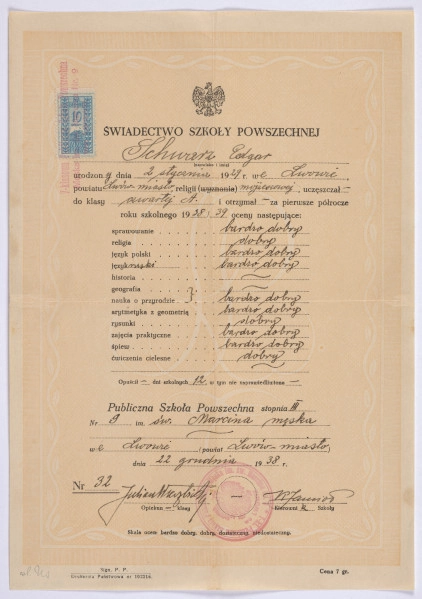 10
ŚWIADECTWO SZKOŁY POWSZECHNEJ
Schwarz Edgar
(nazwisko i imię)
urodzony dnia 2 stycznia 1929 r. we Lwowie,
powiatu Lwów-miasto religii (wyznania) mojżeszowej, uczęszczał —
do klasy czwartej A. i otrzymał — za pierwsze półrocze
roku szkolnego 1938/39 oceny następujące:
sprawowanie bardzo dobry
religia dobry
język polski bardzo dobry
język ruski bardzo dobry
historia —
geografia
nauka o przyrodzie } bardzo dobry
arytmetyka z geometrią bardzo dobry
rysunki dobry
zajęcia praktyczne bardzo dobry
śpiew bardzo dobry
ćwiczenia cielesne dobry
Opuścił — dni szkolnych 12, w tym nie usprawiedliwiono —
Publiczna Szkoła Powszechna stopnia III
Nr 9 im. św. Marcina męska
we Lwowie (powiat Lwów-miasto,
dnia 22 grudnia 1938 r.
Nr 32
Opiekun — klasy
Kierownik Szkoły
Skala ocen: bardzo dobry, dobry, dostateczny, niedostateczny.
Cena 7 gr.